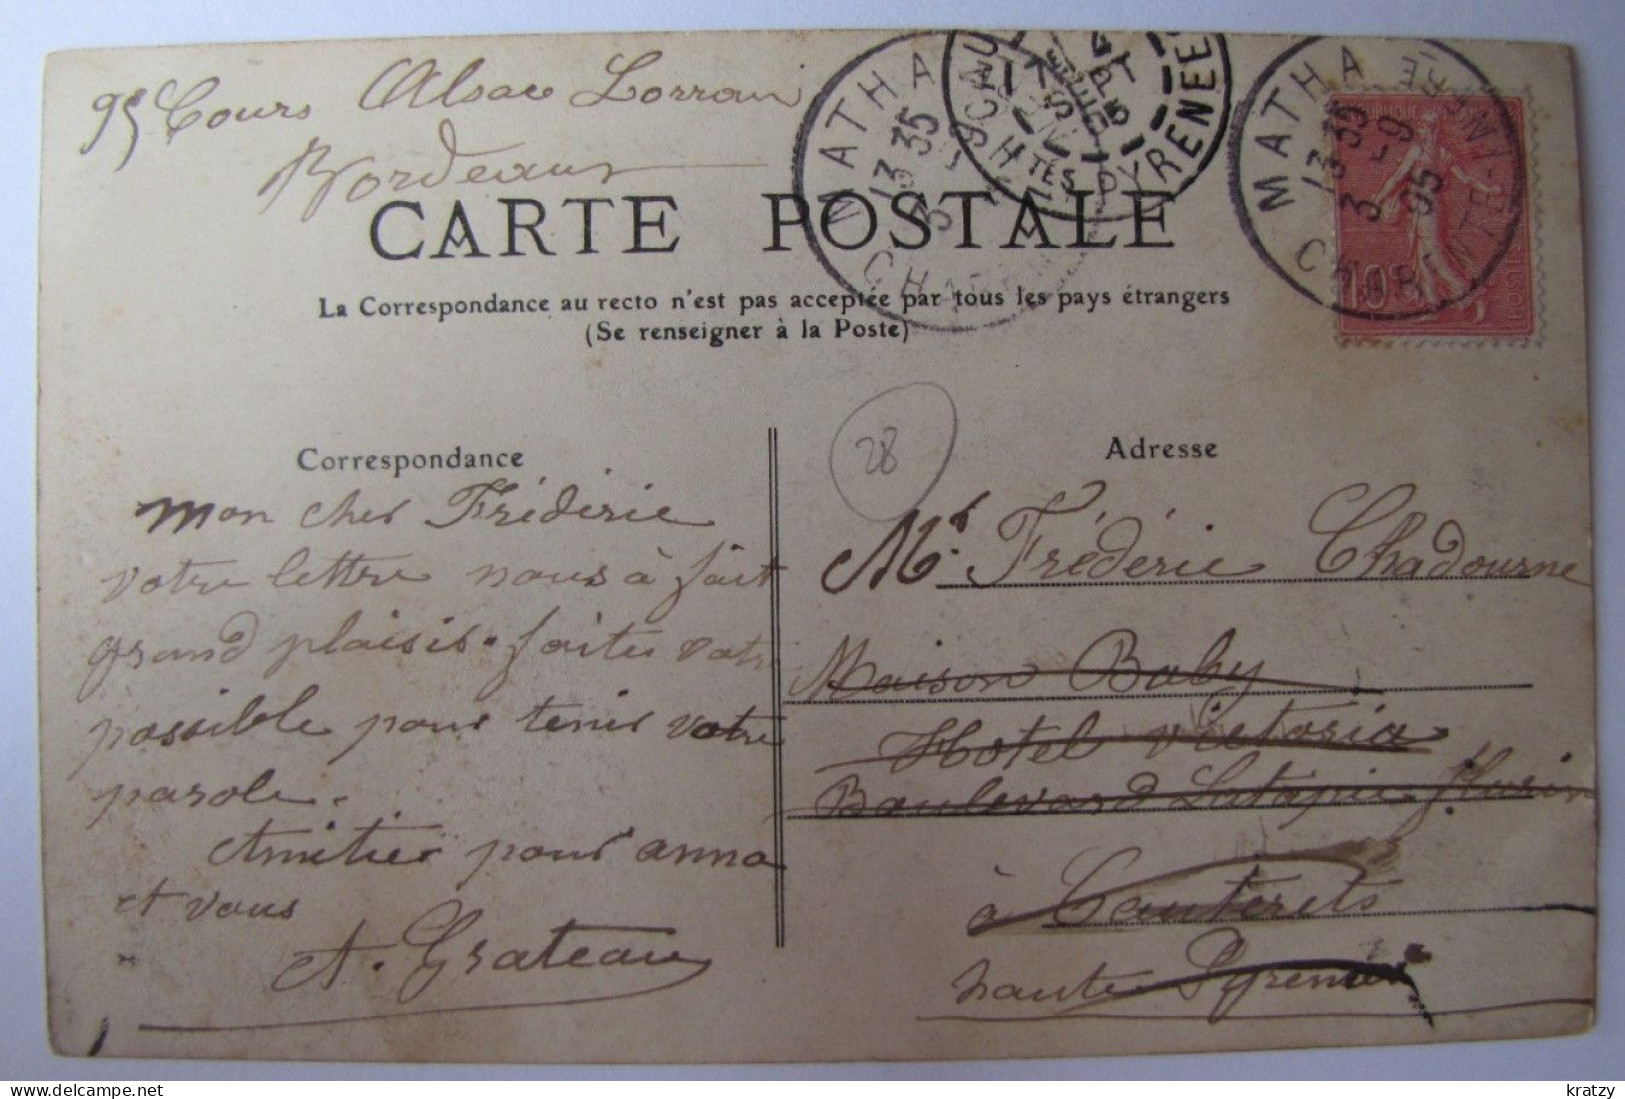 95 Cours Alsace Lorrain
Bordeaux
CARTE POSTALE
La Correspondance au recto n'est pas acceptée par tous les pays étrangers
(Se renseigner à la Poste)
MATHA
13 35
3 -9
MATHA
13 35
3 -9
05
CHARENTE-INFRE
RÉPUBLIQUE
10
POSTES
28
Correspondance
mon cher Fréderic
votre lettre nous à fait
grand plaisir. faites votre
possible pour tenir votre
parole.
Amitier pour anna
et vous
A. Grateau
Adresse
Mr. Fréderic Chadourne
Maison Baby
Hotel Victoria
Boulevard Latapie flurin
à Cauterets
haute Pyrenées
kratzy